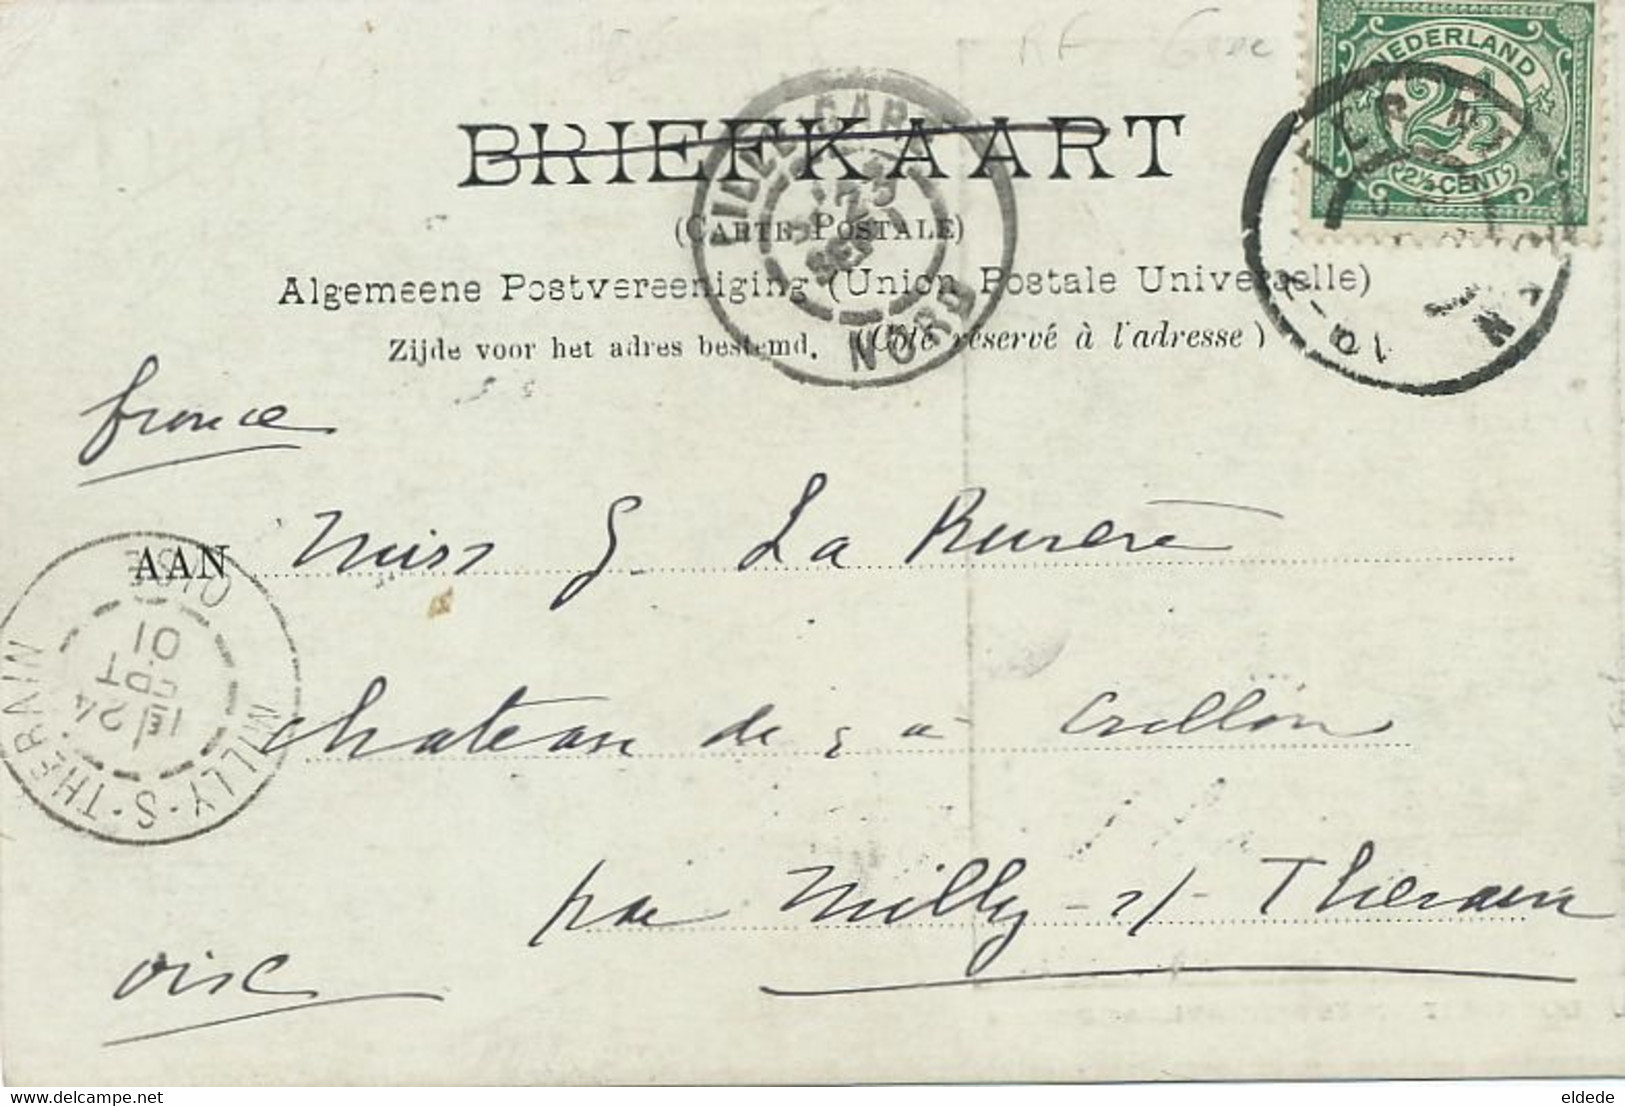 RF
NEDERLAND
2½
2½ CENT
LILLE GARE
23
SEPT
NORD
BRIEFKAART
(CARTE POSTALE)
Algemeene Postvereeniging (Union Postale Universelle)
Zijde voor het adres bestemd. (Côté réservé à l'adresse)
france
AAN Miss G. La Rivière
chateau de à Crillon
par Milly s/ Therain
oise
MILLY-S-THERAIN
OISE
24
01
eldede